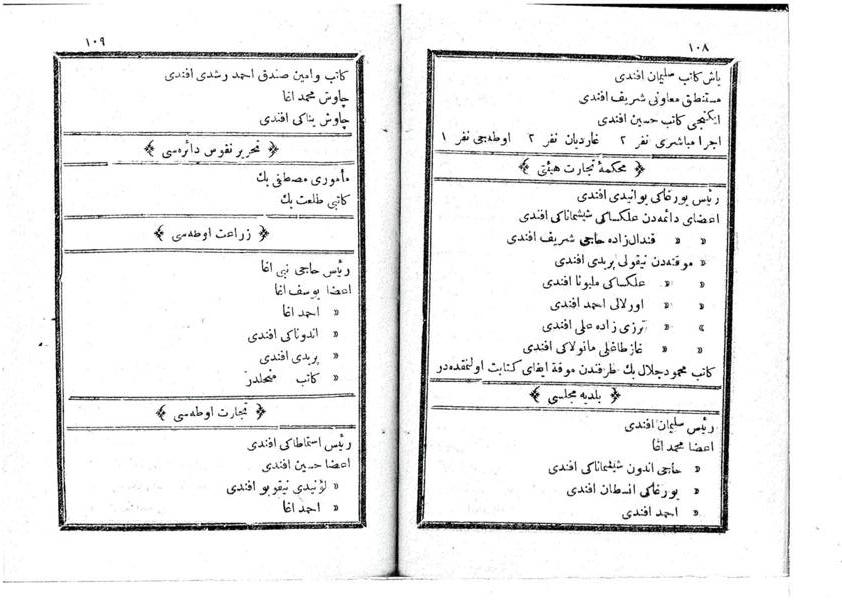 ١٠٨
باش كاتب سليمان افندى
مستنطق معاونى شريف افندى
ايكنجى كاتب حسين افندى
اجرا مباشرى نفر ٢ غارديان نفر ٢ اوطه‌جى نفر ١
﴿ محكمهٔ تجارت هيئتى ﴾
رئيس يورغاكى يوانيدى افندى
اعضاى دائمه‌دن علكساكى شيشماناكى افندى
« « قندال‌زاده حاجى شريف افندى
« موقته‌دن نيقولى پريدى افندى
« « علكساكى مليونا افندى
« « اورلالى احمد افندى
« « ترزى زاده على افندى
« « غازطاغلى مانولاكى افندى
كاتب محمود جلال بك طرفندن موقة ايفاى كتابت اولنمقده‌در
﴿ بلديه مجلسى ﴾
رئيس سليمان افندى
اعضا محمد اغا
« حاجى اندون شيشماناكى افندى
« يورغاكى افندى
« احمد افندى
١٠٩
كاتب وامين صندق احمد رشدى افندى
چاوش محمد اغا
چاوش يناكى افندى
﴿ تحرير نفوس دائره‌سى ﴾
مأمورى مصطفى بك
كاتبى طلعت بك
﴿ زراعت اوطه‌سى ﴾
رئيس حاجى نبى اغا
اعضا يوسف اغا
« احمد اغا
« اندوناكى افندى
« پريدى افندى
« كاتب منحلدر
﴿ تجارت اوطه‌سى ﴾
رئيس استماطاكى افندى
اعضا حسين افندى
« لؤنيدى نيقوبو افندى
« احمد اغا